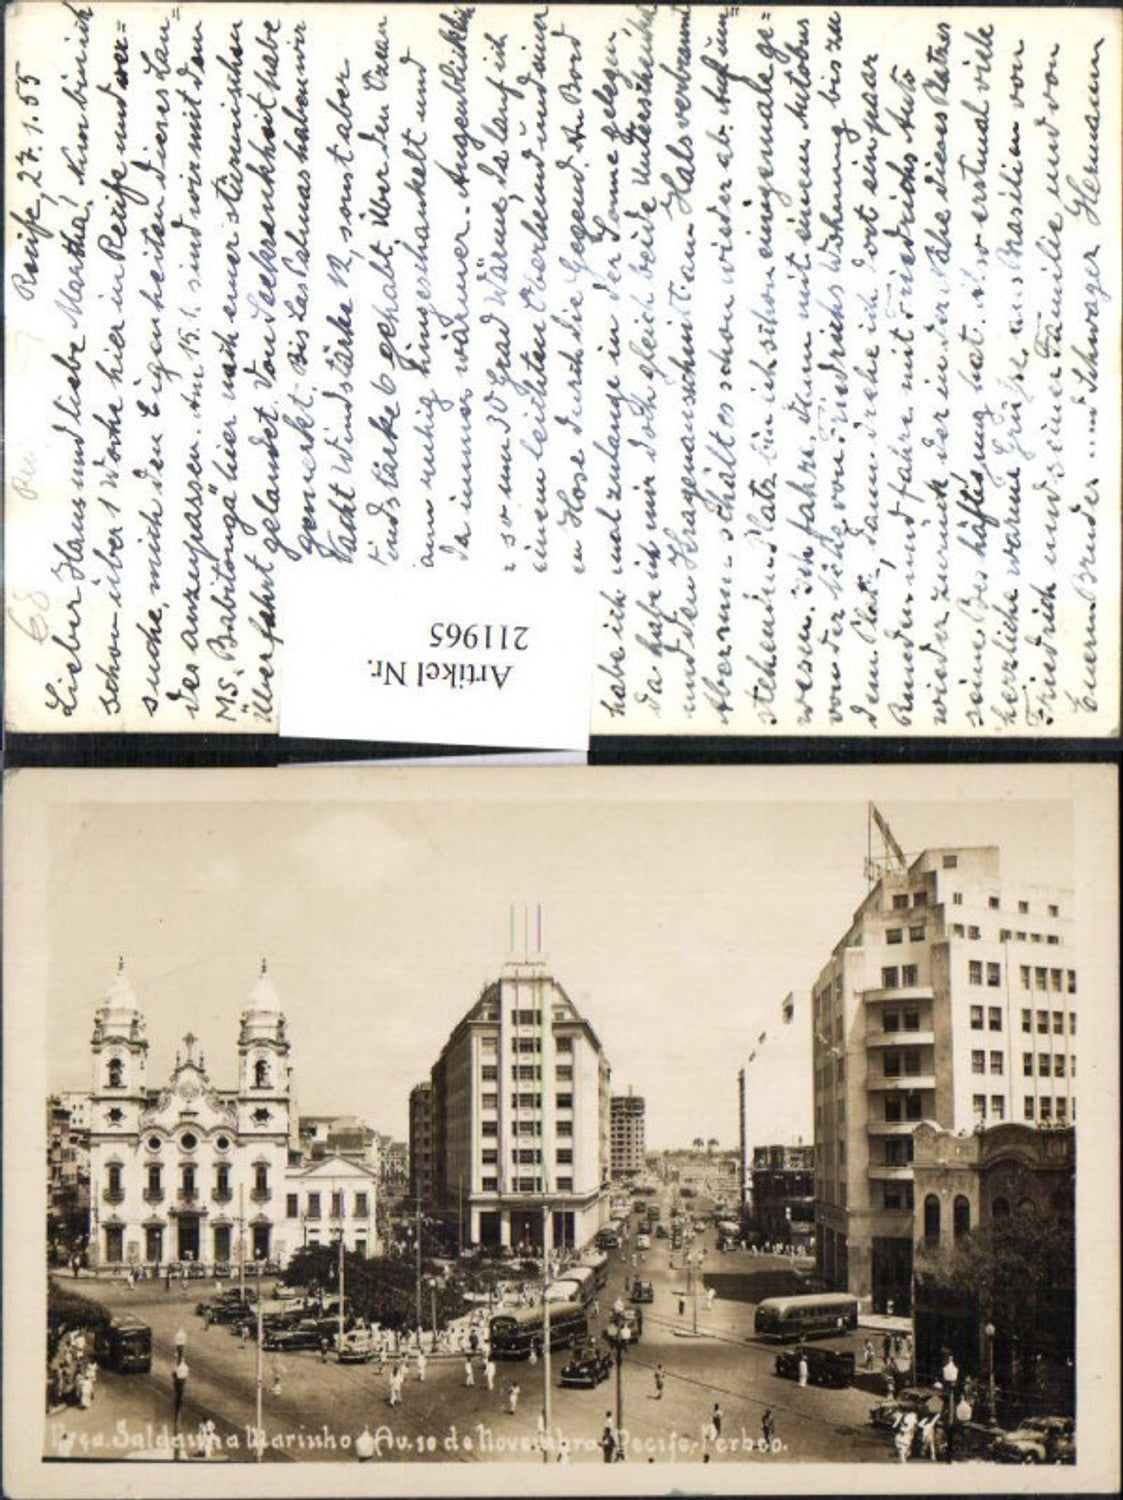 Recife, 27.1.55
Lieber Hans und liebe Martha! Nun bin ich
schon über 1 Woche hier in Recife und ver=
suche, mich den Eigenheiten dieses Lan=
des anzupassen. Am 15.1. sind wir mit dem
M.S. "Babitonga" hier nach einer stürmischen
Überfahrt gelandet. Von Seekrankheit habe
gemerkt. Bis Las Palmas haben wir
Nacht Windstärke 12, sonst aber
indstärke 6 gehabt. Über den Ozean
ann ruhig hingeschaukelt und
da immer wärmer. Augenblicklich
so rund 30 Grad Wärme, da lauf ich
inem leichten Oberhemd und einer
n Hose durch die Gegend. An Bord
habe ich mal zu lange in der Sonne gelegen,
da habe ich mir doch gleich beide Unterschenkel
und den Kragenausschnitt am Hals verbrannt
Aber nun schält es schon wieder ab. Auf um=
stehendem Platz bin ich schon einigemale ge=
wesen. Ich fahre dann mit einem Autobus
von der Nähe von Friedrichs Wohnung bis zu
dem Platz, dann drehe ich dort ein paar
Runden und fahre mit Friedrichs Auto
wieder zurück der in der Nähe dieses Platzes
seine Beschäftigung hat. So erstmal viele
herzliche warme Grüße aus Brasilien von
Friedrich und seiner Familie und von
Euerm Bruder und Schwager Hermann
Artikel Nr.
211965
Prça. Saldanha Marinho e Av. 10 de Novembro Recife, Perbco.
194